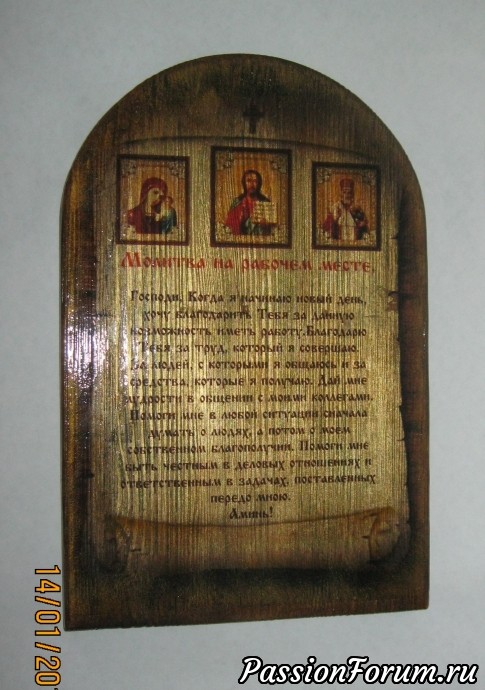 Молитва на рабочем месте.
Господи, Когда я начинаю новый день,
хочу благодарить Тебя за данную
возможность иметь работу.Благодарю
Тебя за труд, который я совершаю.
За людей, с которыми я общаюсь и за
средства, которые я получаю. Дай мне
мудрости в общении с моими коллегами.
Помоги мне в любой ситуации сначала
думать о людях, а потом о моем
собственном благополучии. Помоги мне
быть честным в деловых отношениях и
ответственным в задачах, поставленных
передо мною.
Аминь!
14/01/20
PassionForum.ru